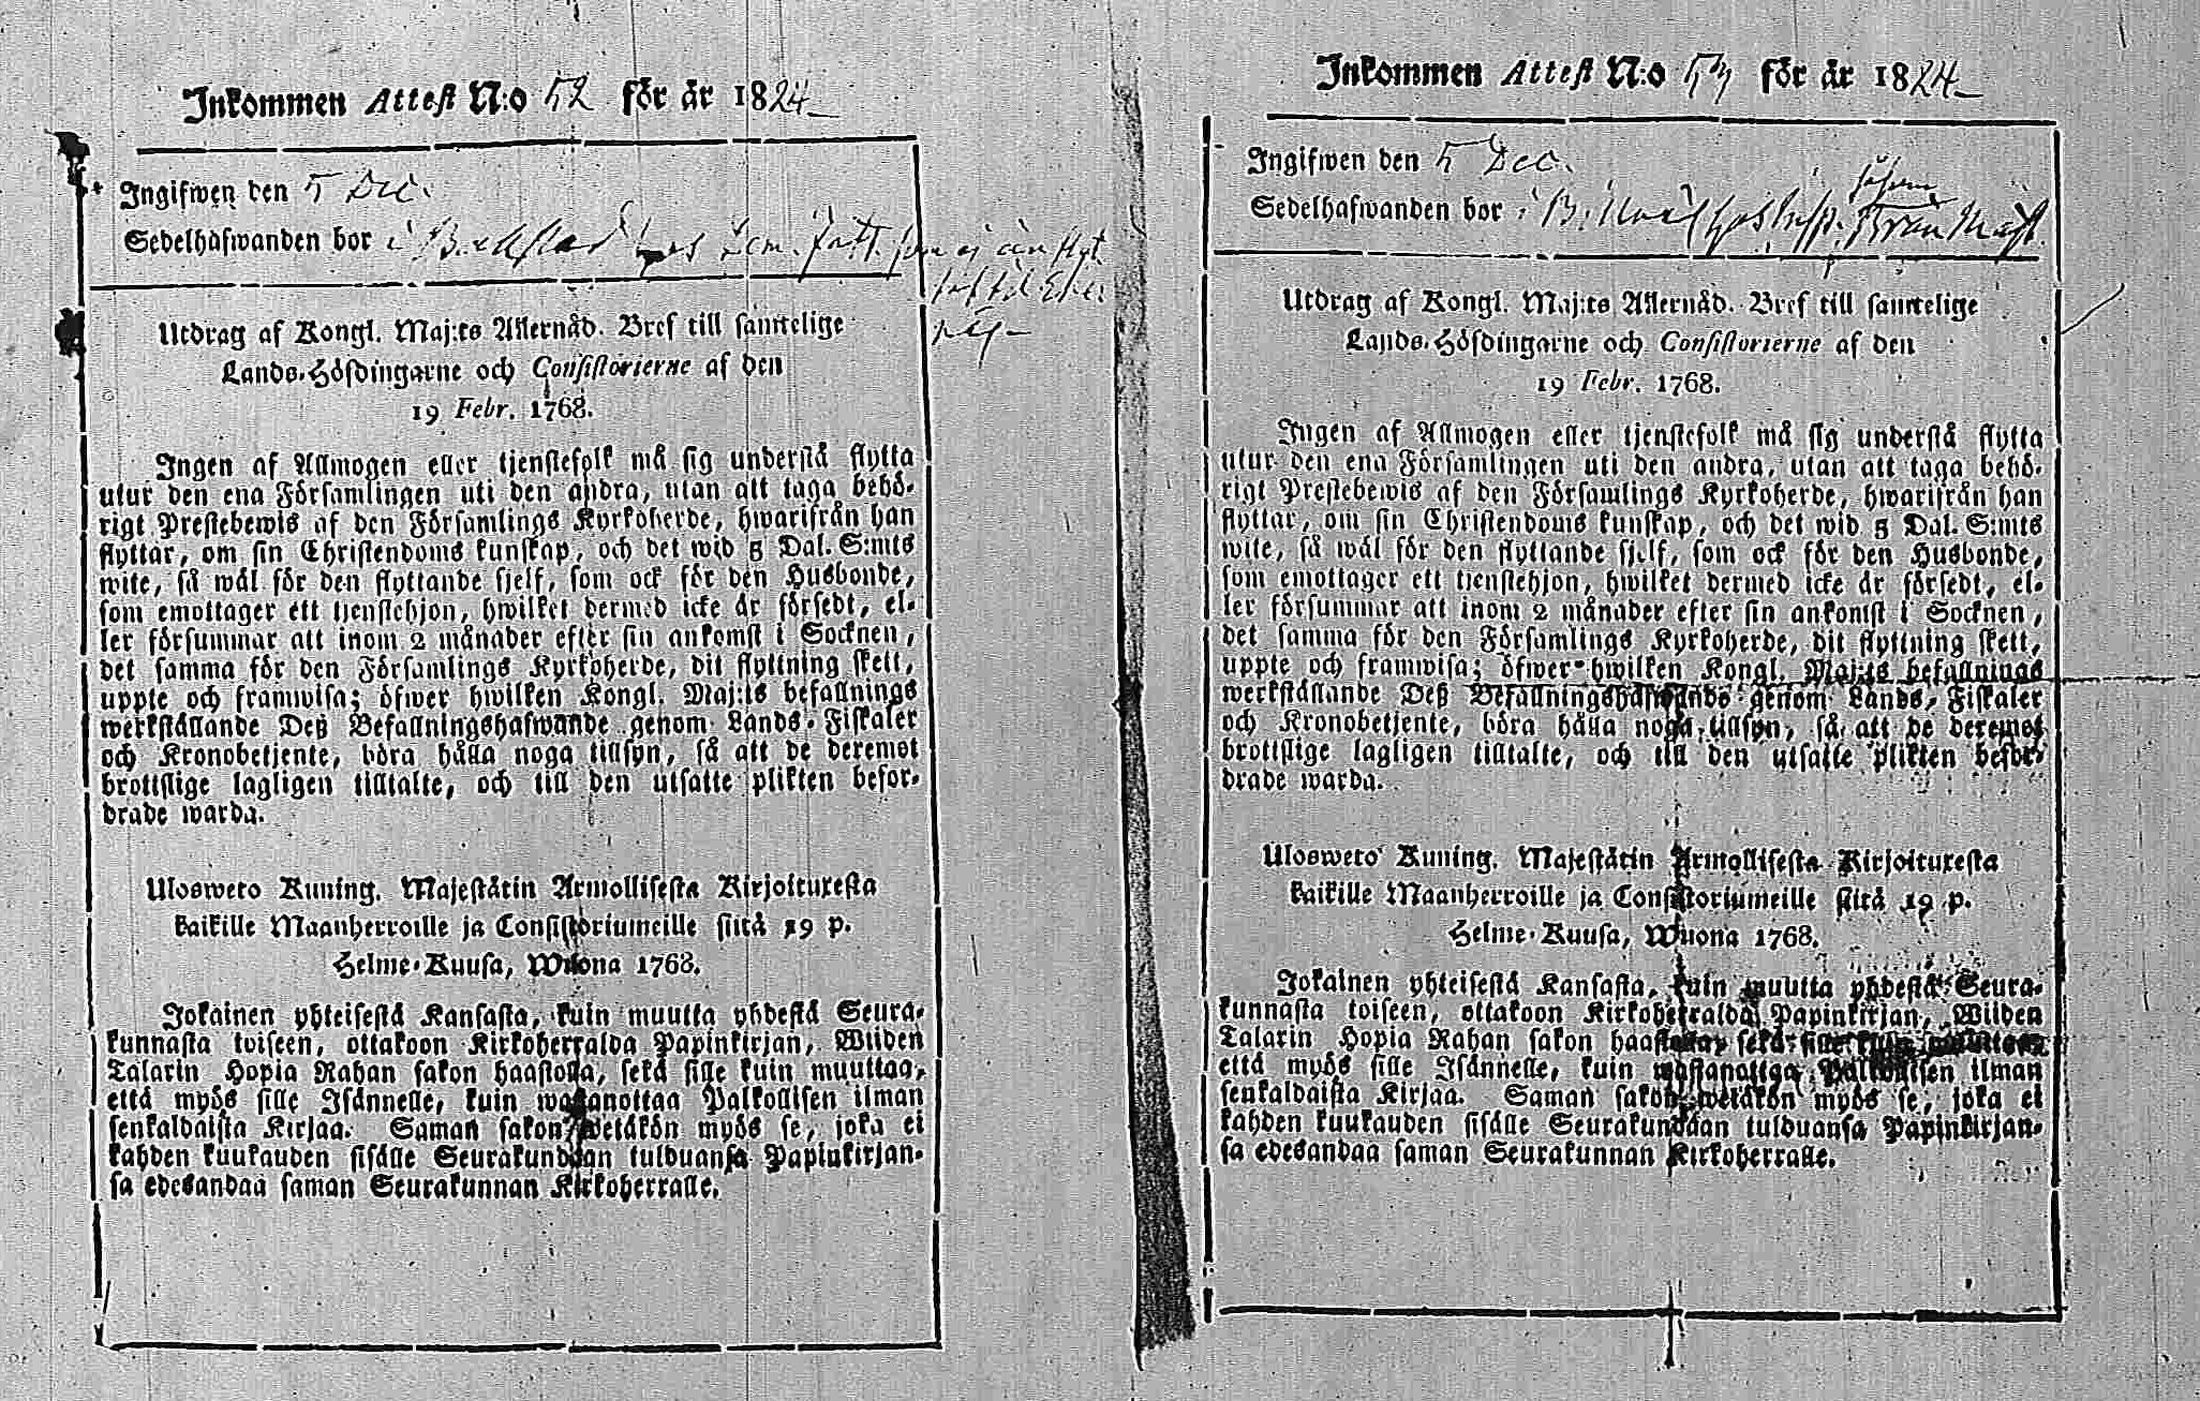 Inkommen Attest N:o 52 för år 1824
Ingifwen den 5 Dec.
Sedelhafwanden bor i
Utdrag af Kongl. Maj:ts Allernåd. Bref till samtelige
Lands-Höfdingarne och Consistorierne af den
19 Febr. 1768.
Ingen af Allmogen eller tjenstefolk må sig understå flytta
utur den ena Församlingen uti den andra, utan att taga behö-
rigt Prestebewis af den Församlings Kyrkoherde, hwarifrån han
flyttar, om sin Christendoms kunskap, och det wid 5 Dal. S:mts
wite, så wäl för den flyttande sjelf, som ock för den Husbonde,
som emottager ett tjenstehjon, hwilket dermed icke är försedt, el-
ler försummar att inom 2 månader efter sin ankomst i Socknen,
det samma för den Församlings Kyrkoherde, dit flyttning skett,
uppte och framwisa; öfwer hwilken Kongl. Maj:ts befallnings
werkställande Deß Befallningshafwande genom Lands-Fiskaler
och Kronobetjente, böra hålla noga tillsyn, så att de deremot
brottslige lagligen tilltalte, och till den utsatte plikten befor-
drade warda.
Ulosweto Kuning. Majestätin Armollisesta Kirjoituxesta
kaikille Maanherroille ja Consistoriumeille siitä 19 p.
Helme-Kuusa, Wuona 1768.
Jokainen yhteisestä Kansasta, kuin muutta yhdestä Seura-
kunnasta toiseen, ottakoon Kirkoherralda Papinkirjan, Wiiden
Talarin Hopia Rahan sakon haastolla, sekä sille kuin muuttaa,
että myös sille Isännelle, kuin wastanottaa Palkollisen ilman
senkaldaista Kirjaa. Saman sakon wetäkön myös se, joka ei
kahden kuukauden sisälle Seurakundaan tulduansa Papinkirjan-
sa edesandaa saman Seurakunnan Kirkoherralle.
Inkommen Attest N:o 53 för år 1824
Ingifwen den 5 Dec.
Sedelhafwanden bor i
Utdrag af Kongl. Maj:ts Allernåd. Bref till samtelige
Lands-Höfdingarne och Consistorierne af den
19 Febr. 1768.
Ingen af Allmogen eller tjenstefolk må sig understå flytta
utur den ena Församlingen uti den andra, utan att taga behö-
rigt Prestebewis af den Församlings Kyrkoherde, hwarifrån han
flyttar, om sin Christendoms kunskap, och det wid 5 Dal. S:mts
wite, så wäl för den flyttande sjelf, som ock för den Husbonde,
som emottager ett tjenstehjon, hwilket dermed icke är försedt, el-
ler försummar att inom 2 månader efter sin ankomst i Socknen,
det samma för den Församlings Kyrkoherde, dit flyttning skett,
uppte och framwisa; öfwer hwilken Kongl. Maj:ts befallnings
werkställande Deß Befallningshafwande genom Lands-Fiskaler
och Kronobetjente, böra hålla noga tillsyn, så att de deremot
brottslige lagligen tilltalte, och till den utsatte plikten befor-
drade warda.
Ulosweto Kuning. Majestätin Armollisesta Kirjoituxesta
kaikille Maanherroille ja Consistoriumeille siitä 19 p.
Helme-Kuusa, Wuona 1768.
Jokainen yhteisestä Kansasta, kuin muutta yhdestä Seura-
kunnasta toiseen, ottakoon Kirkoherralda Papinkirjan, Wiiden
Talarin Hopia Rahan sakon haastolla, sekä sille kuin muuttaa,
että myös sille Isännelle, kuin wastanottaa Palkollisen ilman
senkaldaista Kirjaa. Saman sakon wetäkön myös se, joka ei
kahden kuukauden sisälle Seurakundaan tulduansa Papinkirjan-
sa edesandaa saman Seurakunnan Kirkoherralle.